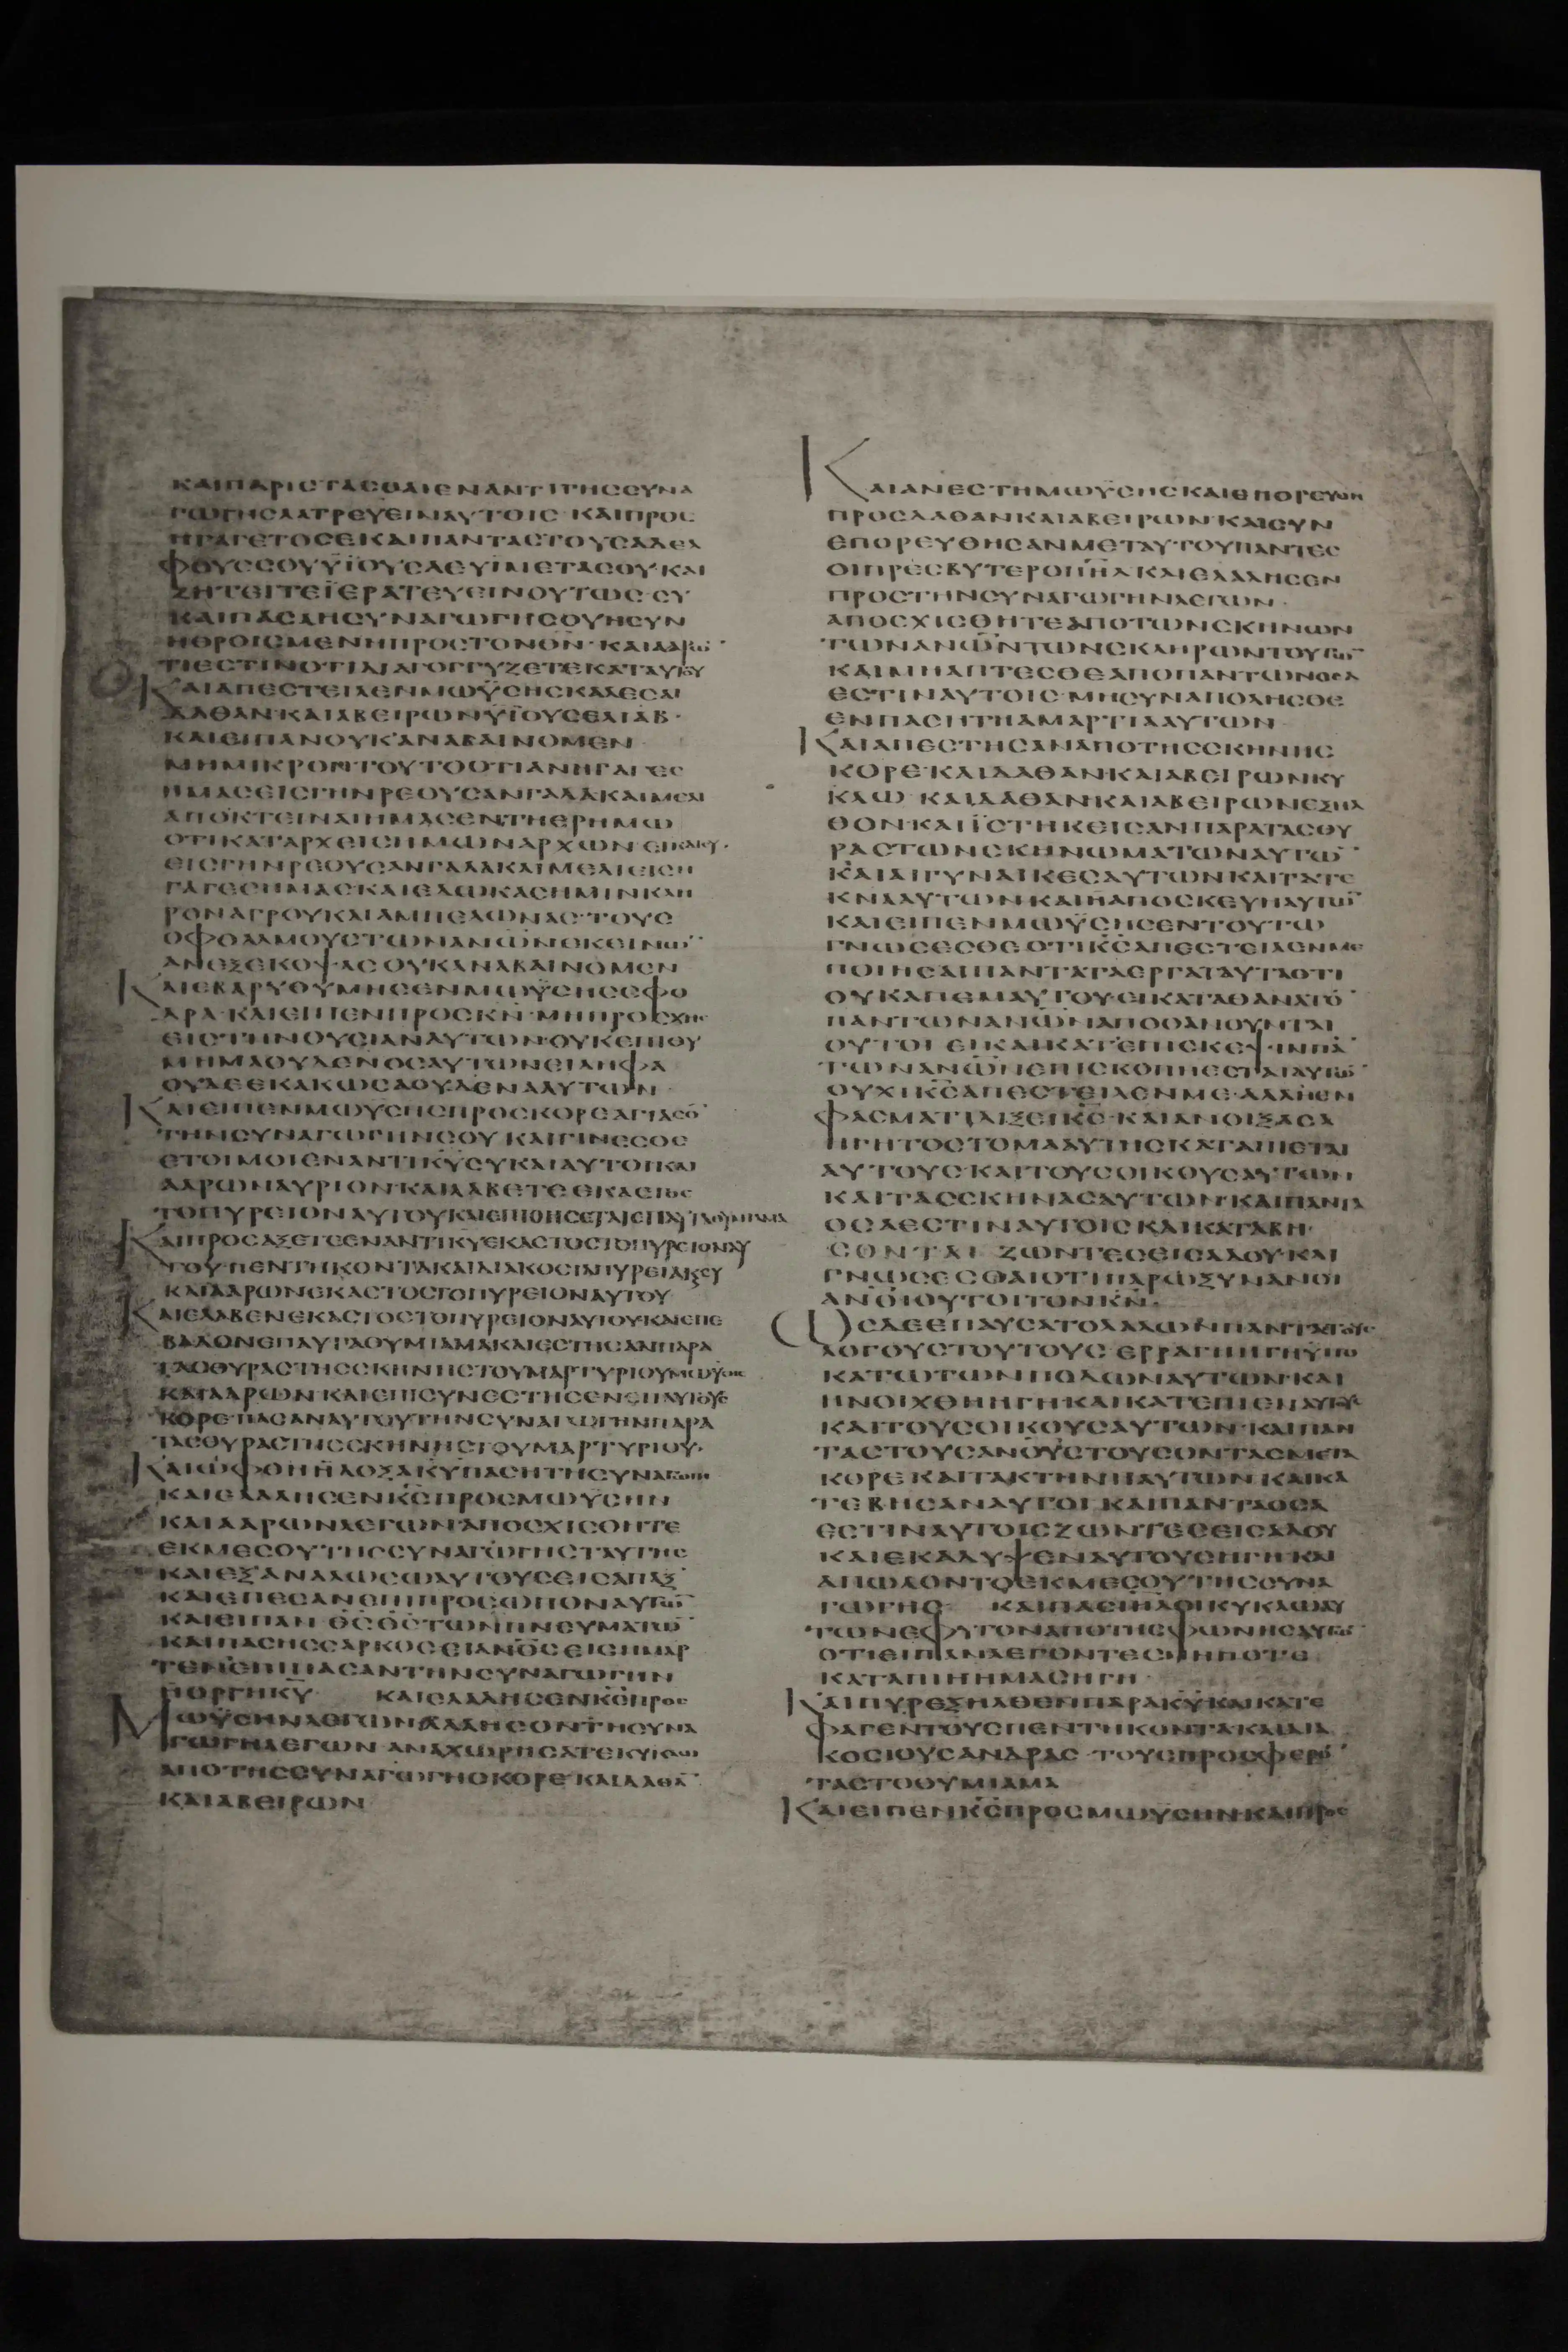 ΚΑΙΠΑΡΙСΤΑСΘΑΙΕΝΑΝΤΙΤΗССΥΝΑ
ΓΩΓΗСΛΑΤΡΕΥΕΙΝΑΥΤΟΙС·ΚΑΙΠΡΟС
ΗΓΑΓΕΤΟСΕΚΑΙΠΑΝΤΑСΤΟΥСΑΔΕΛ
ΦΟΥССΟΥΫΪΟΥСΛΕΥΪΜΕΤΑСΟΥ·ΚΑΙ
ΖΗΤΕΙΤΕΪΕΡΑΤΕΥΕΙΝΟΥΤΩС·СΥ
ΚΑΙΠΑСΑΗСΥΝΑΓΩΓΗСΟΥΗСΥΝ
ΗΘΡΟΙСΜΕΝΗΠΡΟСΤΟΝΘ̅Ν̅·ΚΑΙΑΑΡΩ̅
ΤΙΕСΤΙΝΟΤΙΔΙΑΓΟΓΓΥΖΕΤΕΚΑΤΑΥΤΟΥ
ΚΑΙΑΠΕСΤΕΙΛΕΝΜΩΫСΗСΚΑΛΕСΑΙ
ΔΑΘΑΝ·ΚΑΙΑΒΕΙΡΩΝΫΪΟΥСΕΛΙΑΒ·
ΚΑΙΕΙΠΑΝΟΥΚΑΝΑΒΑΙΝΟΜΕΝ
ΜΗΜΙΚΡΟΝΤΟΥΤΟΟΤΙΑΝΗΓΑΓΕС
ΗΜΑСΕΙСΓΗΝΡΕΟΥСΑΝΓΑΛΑΚΑΙΜΕΛΙ
ΑΠΟΚΤΕΙΝΑΙΗΜΑСΕΝΤΗΕΡΗΜΩ
ΟΤΙΚΑΤΑΡΧΕΙСΗΜΩΝΑΡΧΩΝ·ΕΙΚΑΙСΥ·
ΕΙСΓΗΝΡΕΟΥСΑΝΓΑΛΑΚΑΙΜΕΛΙΕΙСΗ
ΓΑΓΕСΗΜΑСΚΑΙΕΔΩΚΑСΗΜΙΝΚΛΗ
ΡΟΝΑΓΡΟΥΚΑΙΑΜΠΕΛΩΝΑС·ΤΟΥС
ΟΦΘΑΛΜΟΥСΤΩΝΑΝ̅Ω̅Ν̅ΕΚΕΙΝΩ̅
ΑΝΕΞΕΚΟΨΑСΟΥΚΑΝΑΒΑΙΝΟΜΕΝ
ΚΑΙΕΒΑΡΥΘΥΜΗСΕΝΜΩΫСΗССΦΟ
ΔΡΑ·ΚΑΙΕΙΠΕΝΠΡΟСΚ̅Ν̅·ΜΗΠΡΟСΧΗС
ΕΙСΤΗΝΘΥСΙΑΝΑΥΤΩΝ·ΟΥΚΕΠΙΘΥ
ΜΗΜΑΟΥΔΕΝΟСΑΥΤΩΝΕΙΛΗΦΑ
ΟΥΔΕΕΚΑΚΩСΑΟΥΔΕΝΑΑΥΤΩΝ·
ΚΑΙΕΙΠΕΝΜΩΫСΗСΠΡΟСΚΟΡΕΑΓΙΑСΟ̅
ΤΗΝСΥΝΑΓΩΓΗΝСΟΥΚΑΙΓΙΝΕСΘΕ
ΕΤΟΙΜΟΙΕΝΑΝΤΙΚ̅Υ̅СΥΚΑΙΑΥΤΟΙΚΑΙ
ΑΑΡΩΝΑΥΡΙΟΝ·ΚΑΙΛΑΒΕΤΕΕΚΑСΤΟС
ΤΟΠΥΡΕΙΟΝΑΥΤΟΥΚΑΙΕΠΙΘΗСΕΤΑΙΕΠΑΥΤΑΘΥΜΙΑΜΑ
ΚΑΙΠΡΟСΑΞΕΤΕΕΝΑΝΤΙΚΥΕΚΑСΤΟСΤΟΠΥΡΕΙΟΝΑΥ
ΤΟΥ·ΠΕΝΤΗΚΟΝΤΑΚΑΙΔΙΑΚΟСΙΑΠΥΡΕΙΑΚСΥ
ΚΑΙΑΑΡΩΝΕΚΑСΤΟСΤΟΠΥΡΕΙΟΝΑΥΤΟΥ
ΚΑΙΕΛΑΒΕΝΕΚΑСΤΟСΤΟΠΥΡΕΙΟΝΑΥΤΟΥΚΑΙΕΠΕ
ΒΑΛΟΝΕΠΑΥΤΑΘΥΜΙΑΜΑΚΑΙΕСΤΗСΑΝΠΑΡΑ
ΤΑСΘΥΡΑСΤΗССΚΗΝΗСΤΟΥΜΑΡΤΥΡΙΟΥΜΩΫСΗС
ΚΑΙΑΑΡΩΝ·ΚΑΙΕΠΙСΥΝΕСΤΗСΕΝΕΠΑΥΤΟΥС
ΚΟΡΕ·ΠΑСΑΝΑΥΤΟΥΤΗΝСΥΝΑΓΩΓΗΝΠΑΡΑ
ΤΑСΘΥΡΑСΤΗССΚΗΝΗСΤΟΥΜΑΡΤΥΡΙΟΥ·
ΚΑΙΩΦΘΗΗΔΟΞΑΚ̅Υ̅ΠΑСΗΤΗСΥΝΑΓΩΓΗ
ΚΑΙΕΛΑΛΗСΕΝΚ̅С̅ΠΡΟСΜΩΫСΗΝ
ΚΑΙΑΑΡΩΝΛΕΓΩΝΑΠΟСΧΙСΘΗΤΕ
ΕΚΜΕСΟΥΤΗССΥΝΑΓΩΓΗСΤΑΥΤΗС
ΚΑΙΕΞΑΝΑΛΩСΩΑΥΤΟΥСΕΙСΑΠΑΞ
ΚΑΙΕΠΕСΑΝΕΠΙΠΡΟСΩΠΟΝΑΥΤΩ̅
ΚΑΙΕΙΠΑΝ Θ̅С̅Θ̅С̅ΤΩΝΠΝΕΥΜΑΤΩ̅
ΚΑΙΠΑСΗССΑΡΚΟСΕΙΑΝ̅Ο̅С̅ΕΙСΗΜΑΡ
ΤΕΝΕΠΙΠΑСΑΝΤΗΝСΥΝΑΓΩΓΗΝ
ΗΟΡΓΗΚ̅Υ̅ ΚΑΙΕΛΑΛΗСΕΝΚ̅С̅ΠΡΟС
ΜΩΫСΗΝΛΕΓΩΝΛΑΛΗСΟΝΤΗСΥΝΑ
ΓΩΓΗΛΕΓΩΝ·ΑΝΑΧΩΡΗСΑΤΕΚΥΚΛΩ
ΑΠΟΤΗССΥΝΑΓΩΓΗСΚΟΡΕ·ΚΑΙΔΑΘΑ̅
ΚΑΙΑΒΕΙΡΩΝ
ΚΑΙΑΝΕСΤΗΜΩΫСΗСΚΑΙΕΠΟΡΕΥΘΗ
ΠΡΟСΔΑΘΑΝΚΑΙΑΒΕΙΡΩΝ·ΚΑΙСΥΝ
ΕΠΟΡΕΥΘΗСΑΝΜΕΤΑΥΤΟΥΠΑΝΤΕС
ΟΙΠΡΕСΒΥΤΕΡΟΙΙ̅Η̅Λ̅ΚΑΙΕΛΑΛΗСΕΝ
ΠΡΟСΤΗΝСΥΝΑΓΩΓΗΝΛΕΓΩΝ·
ΑΠΟСΧΙСΘΗΤΕΑΠΟΤΩΝСΚΗΝΩΝ
ΤΩΝΑΝ̅Ω̅Ν̅ΤΩΝСΚΛΗΡΩΝΤΟΥΤΩ̅
ΚΑΙΜΗΑΠΤΕСΘΕΑΠΟΠΑΝΤΩΝΟСΑ
ΕСΤΙΝΑΥΤΟΙС·ΜΗСΥΝΑΠΟΛΗСΘΕ
ΕΝΠΑСΗΤΗΑΜΑΡΤΙΑΑΥΤΩΝ·
ΚΑΙΑΠΕСΤΗСΑΝΑΠΟΤΗССΚΗΝΗС
ΚΟΡΕ·ΚΑΙΔΑΘΑΝΚΑΙΑΒΕΙΡΩΝΚΥ
ΚΛΩ·ΚΑΙΔΑΘΑΝΚΑΙΑΒΕΙΡΩΝΕΞΗΛ
ΘΟΝ·ΚΑΙΪСΤΗΚΕΙСΑΝΠΑΡΑΤΑСΘΥ
ΡΑСΤΩΝСΚΗΝΩΜΑΤΩΝΑΥΤΩ̅
ΚΑΙΑΙΓΥΝΑΙΚΕСΑΥΤΩΝΚΑΙΤΑΤΕ
ΚΝΑΑΥΤΩΝΚΑΙΗΑΠΟСΚΕΥΗΑΥΤΩ̅
ΚΑΙΕΙΠΕΝΜΩΫСΗСΕΝΤΟΥΤΩ
ΓΝΩСΕСΘΕΟΤΙΚ̅С̅ΑΠΕСΤΕΙΛΕΝΜΕ
ΠΟΙΗСΑΙΠΑΝΤΑΤΑΕΡΓΑΤΑΥΤΑΟΤΙ
ΟΥΚΑΠΕΜΑΥΤΟΥ·ΕΙΚΑΤΑΘΑΝΑΤΟ̅
ΠΑΝΤΩΝΑΝ̅Ω̅Ν̅ΑΠΟΘΑΝΟΥΝΤΑΙ
ΟΥΤΟΙ ΕΙΚΑΙΚΑΤΕΠΙСΚΕΨΙΝΠΑ̅
ΤΩΝΑΝ̅Ω̅Ν̅ΕΠΙСΚΟΠΗΕСΤΑΙΑΥΤΩ̅
ΟΥΧΙΚ̅С̅ΑΠΕСΤΕΙΛΕΝΜΕ·ΑΛΛΗΕΝ
ΦΑСΜΑΤΙΔΙΞΕΙΚ̅С̅·ΚΑΙΑΝΟΙΞΑСΑ
ΗΓΗΤΟСΤΟΜΑΑΥΤΗСΚΑΤΑΠΙΕΤΑΙ
ΑΥΤΟΥС·ΚΑΙΤΟΥСΟΙΚΟΥСΑΥΤΩΝ
ΚΑΙΤΑССΚΗΝΑСΑΥΤΩΝ·ΚΑΙΠΑΝΤΑ
ΟСΑΕСΤΙΝΑΥΤΟΙСΚΑΙΚΑΤΑΒΗ·
СΟΝΤΑΙ ΖΩΝΤΕСΕΙСΑΔΟΥ·ΚΑΙ
ΓΝΩСΕСΘΑΙΟΤΙΠΑΡΩΞΥΝΑΝΟΙ
ΑΝ̅Ο̅Ι̅ΟΥΤΟΙΤΟΝΚ̅Ν̅·
ΩСΔΕΕΠΑΥСΑΤΟΛΑΛΩΝΠΑΝΤΑСΤΟΥС
ΛΟΓΟΥСΤΟΥΤΟΥС·ΕΡΡΑΓΗΗΓΗΫΠΟ
ΚΑΤΩΤΩΝΠΟΔΩΝΑΥΤΩΝ·ΚΑΙ
ΗΝΟΙΧΘΗΗΓΗ·ΚΑΙΚΑΤΕΠΙΕΝΑΥΤΟΥС
ΚΑΙΤΟΥСΟΙΚΟΥСΑΥΤΩΝ·ΚΑΙΠΑΝ
ΤΑСΤΟΥСΑΝ̅Ο̅Υ̅С̅ΤΟΥСΟΝΤΑСΜΕΤΑ
ΚΟΡΕΚΑΙΤΑΚΤΗΝΗΑΥΤΩΝ·ΚΑΙΚΑ
ΤΕΒΗСΑΝΑΥΤΟΙ·ΚΑΙΠΑΝΤΑΟСΑ
ΕСΤΙΝΑΥΤΟΙСΖΩΝΤΕСΕΙСΑΔΟΥ
ΚΑΙΕΚΑΛΥΨΕΝΑΥΤΟΥСΗΓΗ·ΚΑΙ
ΑΠΩΛΟΝΤΟΕΚΜΕСΟΥΤΗССΥΝΑ
ΓΩΓΗС· ΚΑΙΠΑСΙΗΛΟΙΚΥΚΛΩΑΥ
ΤΩΝΕΦΥΓΟΝΑΠΟΤΗСΦΩΝΗСΑΥΤΩ̅
ΟΤΙΕΙΠΑΝΛΕΓΟΝΤΕСΜΗΠΟΤΕ
ΚΑΤΑΠΙΗΗΜΑСΗΓΗ·
ΚΑΙΠΥΡΕΞΗΛΘΕΝΠΑΡΑΚ̅Υ̅ΚΑΙΚΑΤΕ
ΦΑΓΕΝΤΟΥСΠΕΝΤΗΚΟΝΤΑΚΑΙΔΙΑ
ΚΟСΙΟΥСΑΝΔΡΑС·ΤΟΥСΠΡΟСΦΕΡΟ̅
ΤΑСΤΟΘΥΜΙΑΜΑ
ΚΑΙΕΙΠΕΝΚ̅С̅ΠΡΟСΜΩΫСΗΝ·ΚΑΙΠΡΟС